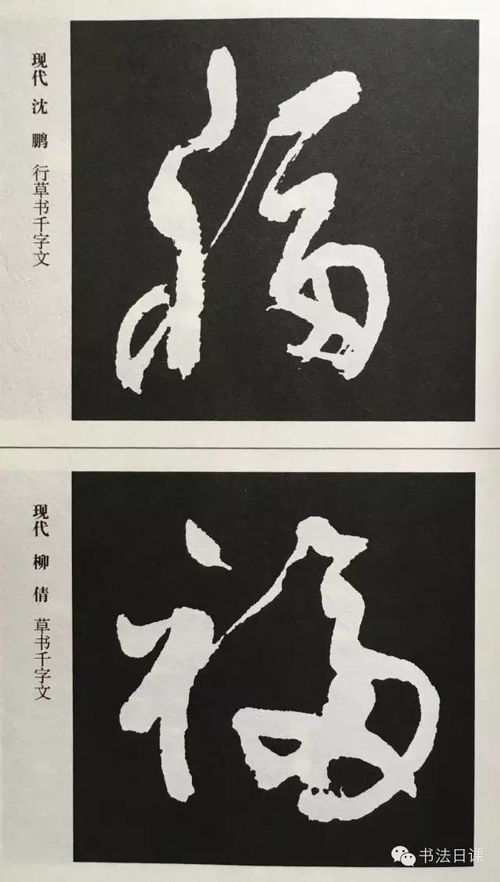 现代 沈 鹏 行草书千字文
福
现代 柳 倩 草书千字文
福
书法日课